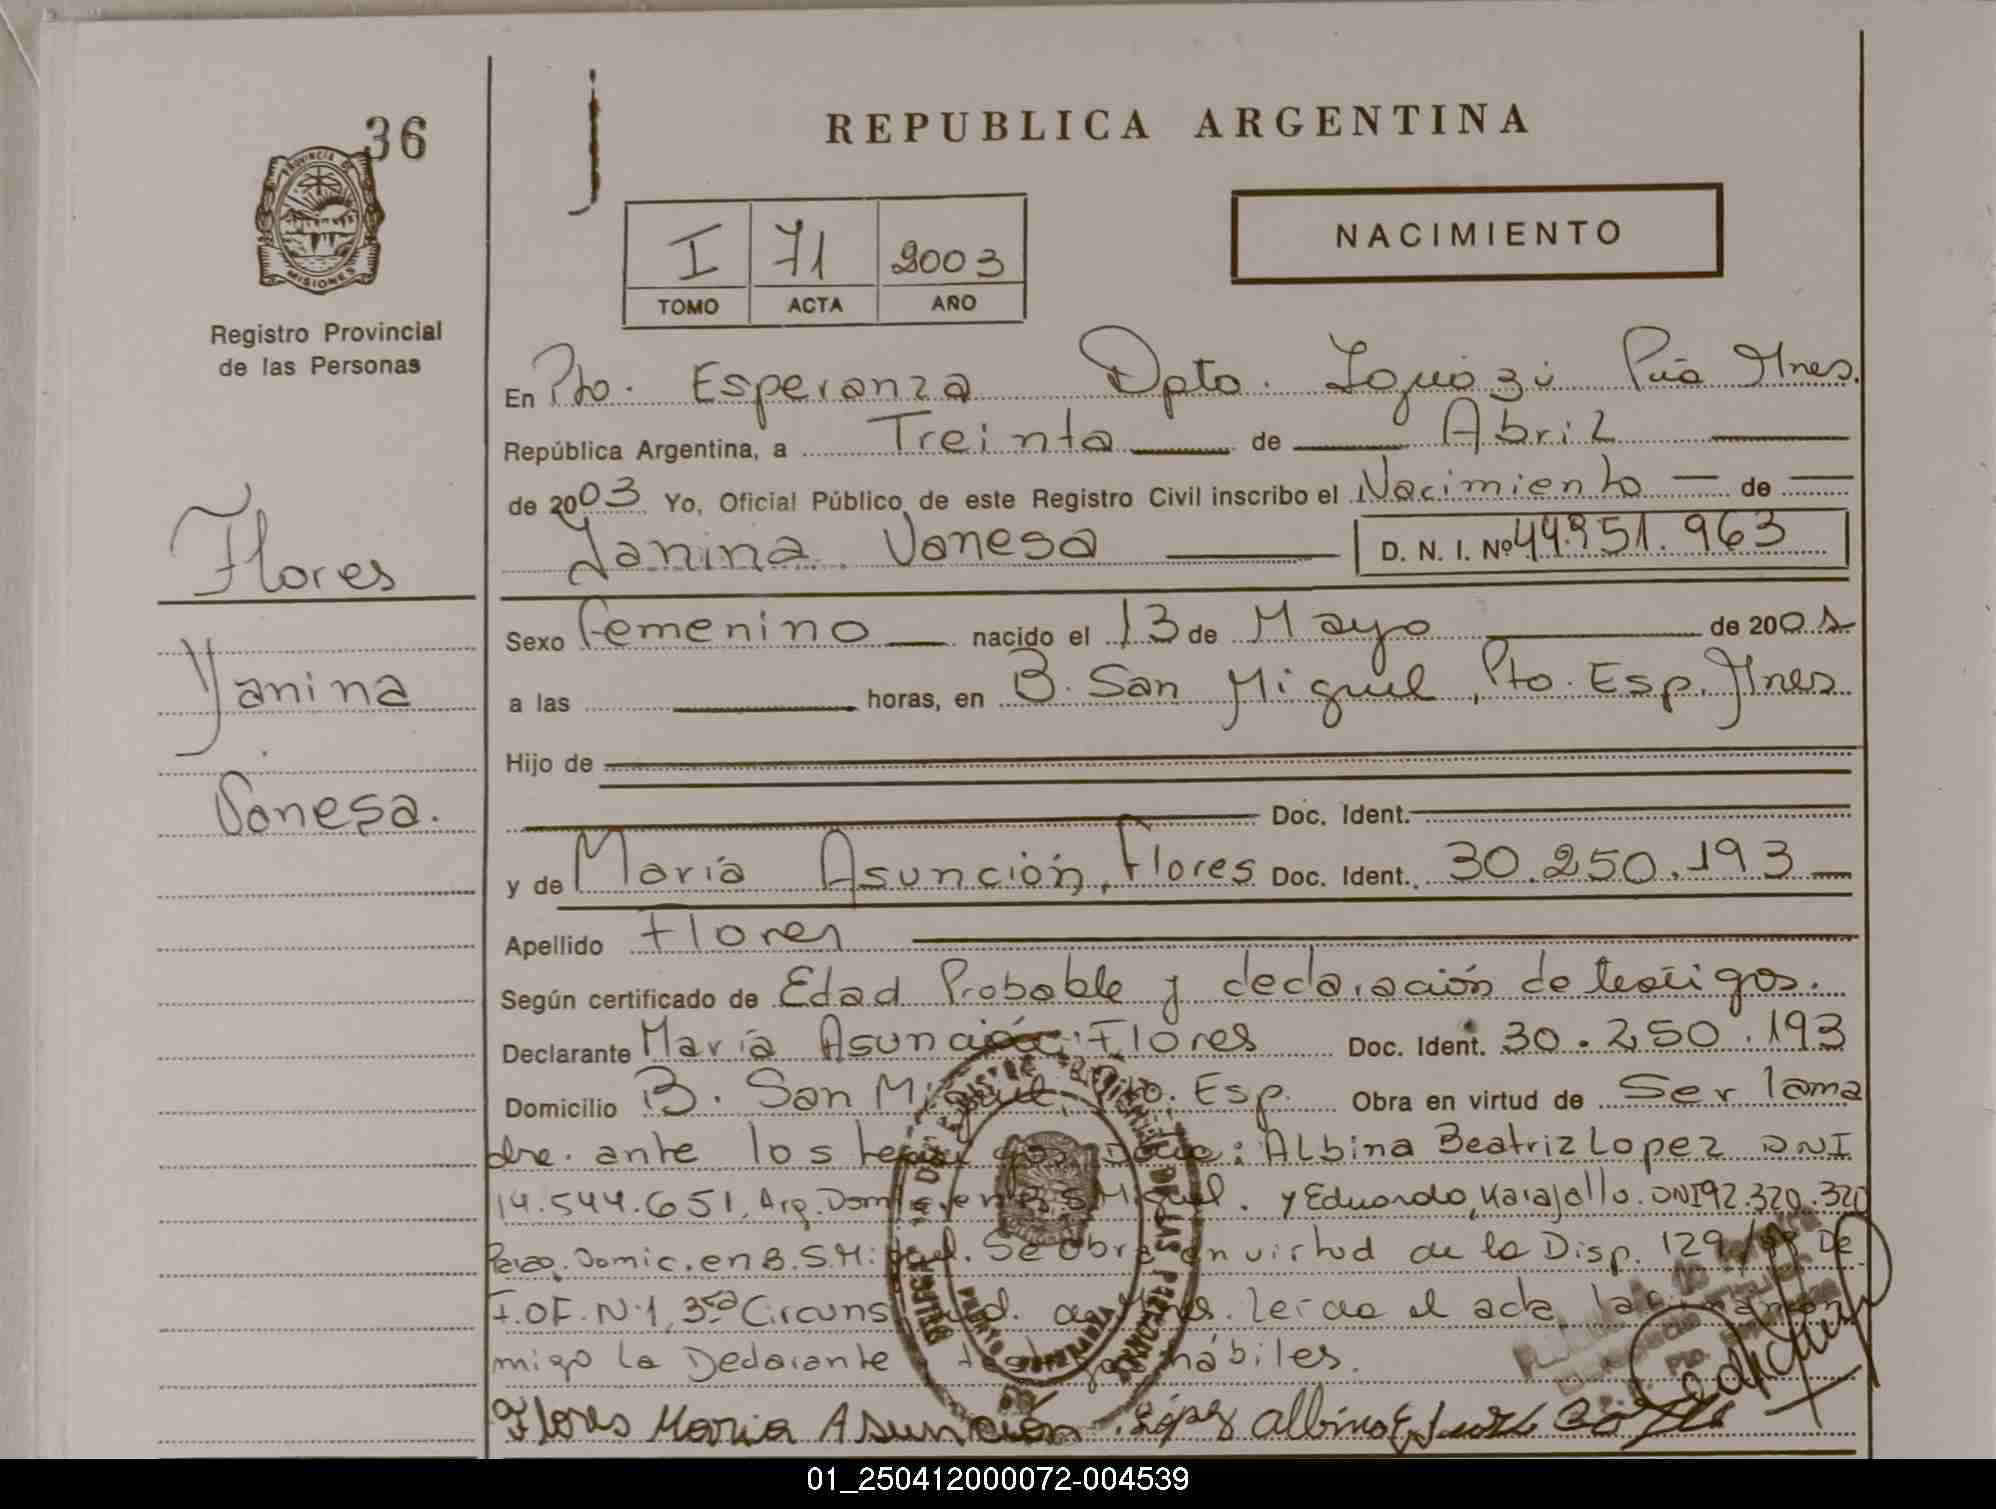 36
PROVINCIA DE
MISIONES
Registro Provincial
de las Personas
Flores
Yanina
Vanesa.
REPUBLICA ARGENTINA
I 71 2003
TOMO ACTA AÑO
NACIMIENTO
En Pto. Esperanza Dpto. Iguazú Pcia Mnes.
República Argentina, a Treinta de Abril
de 2003 Yo, Oficial Público de este Registro Civil inscribo el Nacimiento de
Yanina Vanesa D. N. I. Nº 44.851.963
Sexo Femenino nacido el 13 de Mayo de 200
a las horas, en B. San Miguel, Pto. Esp. Mnes
Hijo de
Doc. Ident.
y de María Asunción, Flores Doc. Ident. 30.250.193
Apellido Flores
Según certificado de Edad Probable y declaración de testigos.
Declarante María Asunción, Flores Doc. Ident. 30.250.193
Domicilio B. San Miguel, Pto. Esp. Obra en virtud de Ser la ma
dre. ante los testigos : Albina Beatriz Lopez DNI
14.544.651, Arg. Domic. en B. S. Miguel. y Eduardo, Karajallo. DNI 92.320.320
Parag. Domic. en B. S. Miguel. Se obra en virtud de la Disp. 129/ De
I. OF. N·1, 3ra Circuns de Mnes. leida el acta
migo la Declarante y testigos hábiles.
Flores Maria Asuncion López Albina
01_250412000072-004539